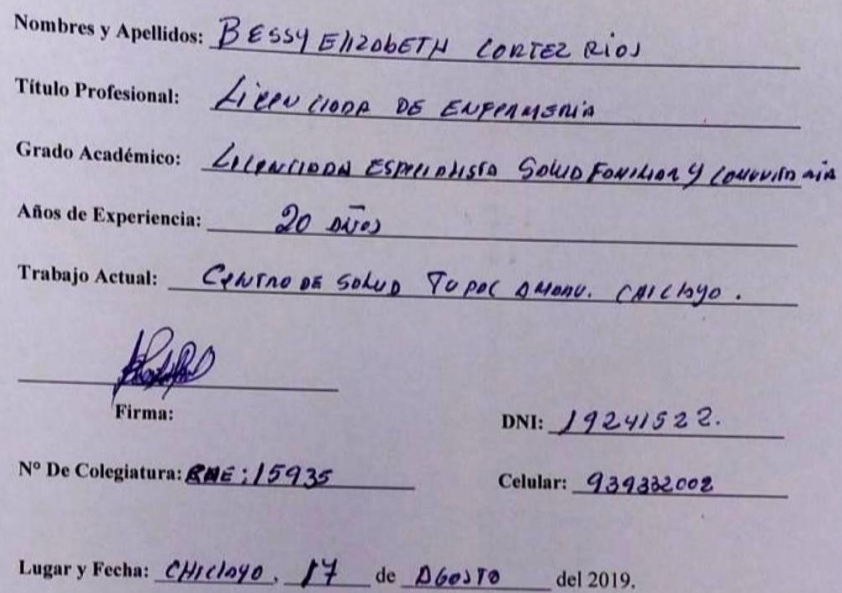 Nombres y Apellidos: BESSY ElizobETH CORTEZ RiOS
Título Profesional: Licenciada DE ENFERMERIA
Grado Académico: Licenciada Especialista Salud Familiar y Comunitaria
Años de Experiencia: 20 años
Trabajo Actual: Centro DE Salud Tupac Amaru. Chiclayo.
Firma:
DNI: 19241522.
Nº De Colegiatura: RNE: 15935
Celular: 939332002
Lugar y Fecha: CHiclayo, 17 de Agosto del 2019.